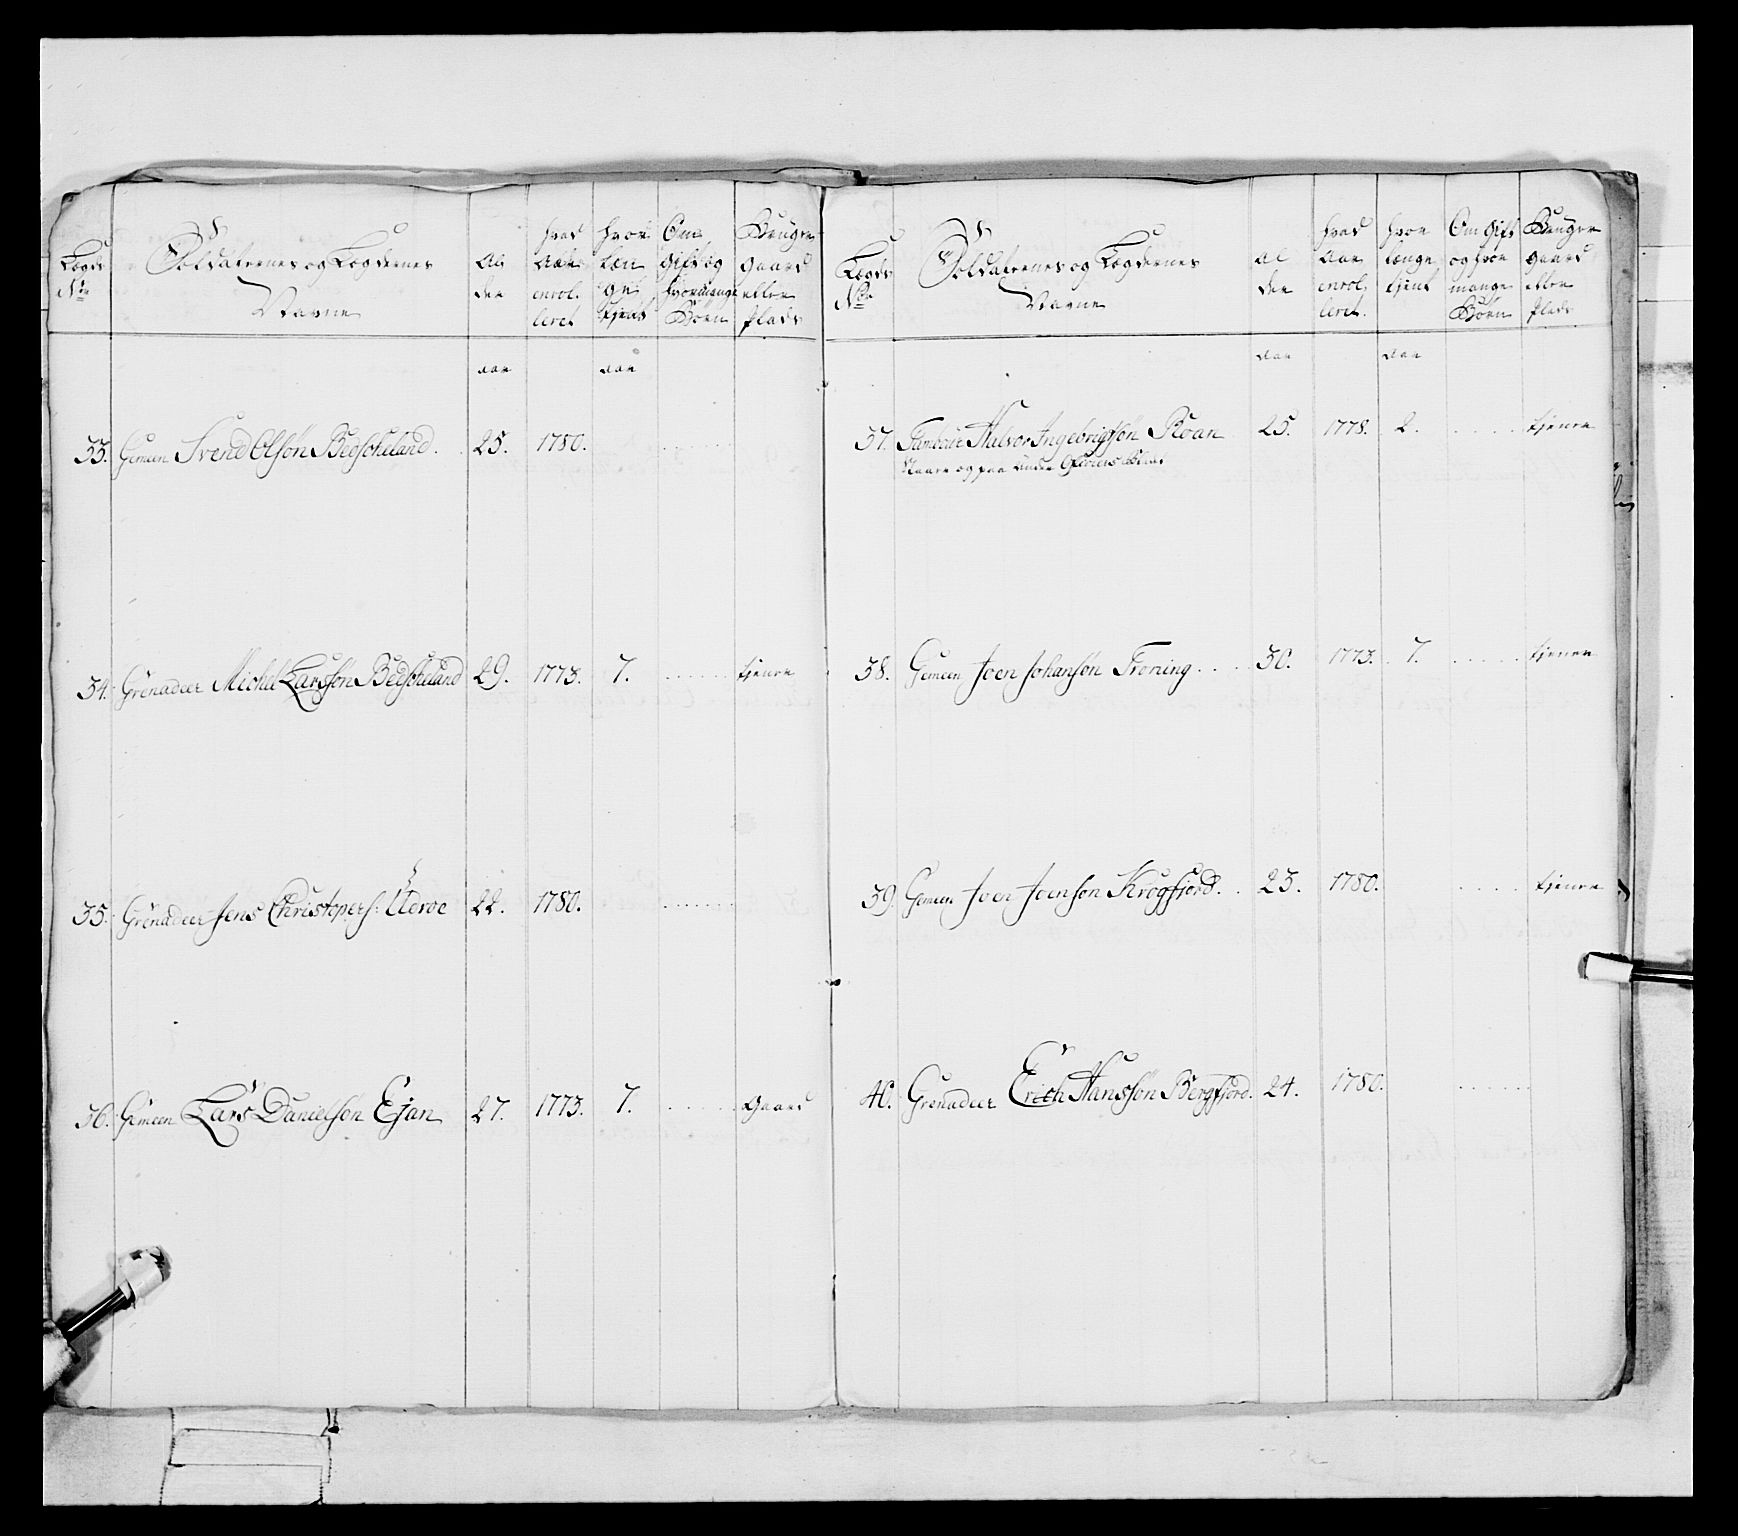 Lægds
No
Soldaternes og Lægdernes
Navne
Al
der
hvad
Aar
enrol.
leret
hvor
læn
ge
tjent
Om
Gift og
hvormange
Børn
Bruger
Gaard
eller
Plads
aar
aar
33. Gemeen Svend Olsøn Bedskeland. 25. 1780.
34. Grenadeer Michel Larssøn Bedskeland 29. 1773. 7. tjener
35. Grenadeer Jens Christopers: Uderoe 22. 1780.
36. Gemeen Lars Danielsøn Ejan 27. 1773. 7. Gaard
Lægds
No
Soldaternes og Lægdernes
Navne
Al
der
hvad
Aar
enrol.
leret.
hvor
længe
tjent
Om Gift
og hvor
mange
Børn
Bruger
Gaard
eller
Plads
aar
aar
37. Tambour Halvor Ingebrigtsøn Roan 25. 1778. 2. tjener
38. Gemeen Joen Johansøn Froning 30. 1773. 7. tjener
39. Gemeen Joen Joensøn Krogfjord. 23. 1780. tjener
40. Grenadeer Erich Hanssøn Bergfjord. 24. 1780.